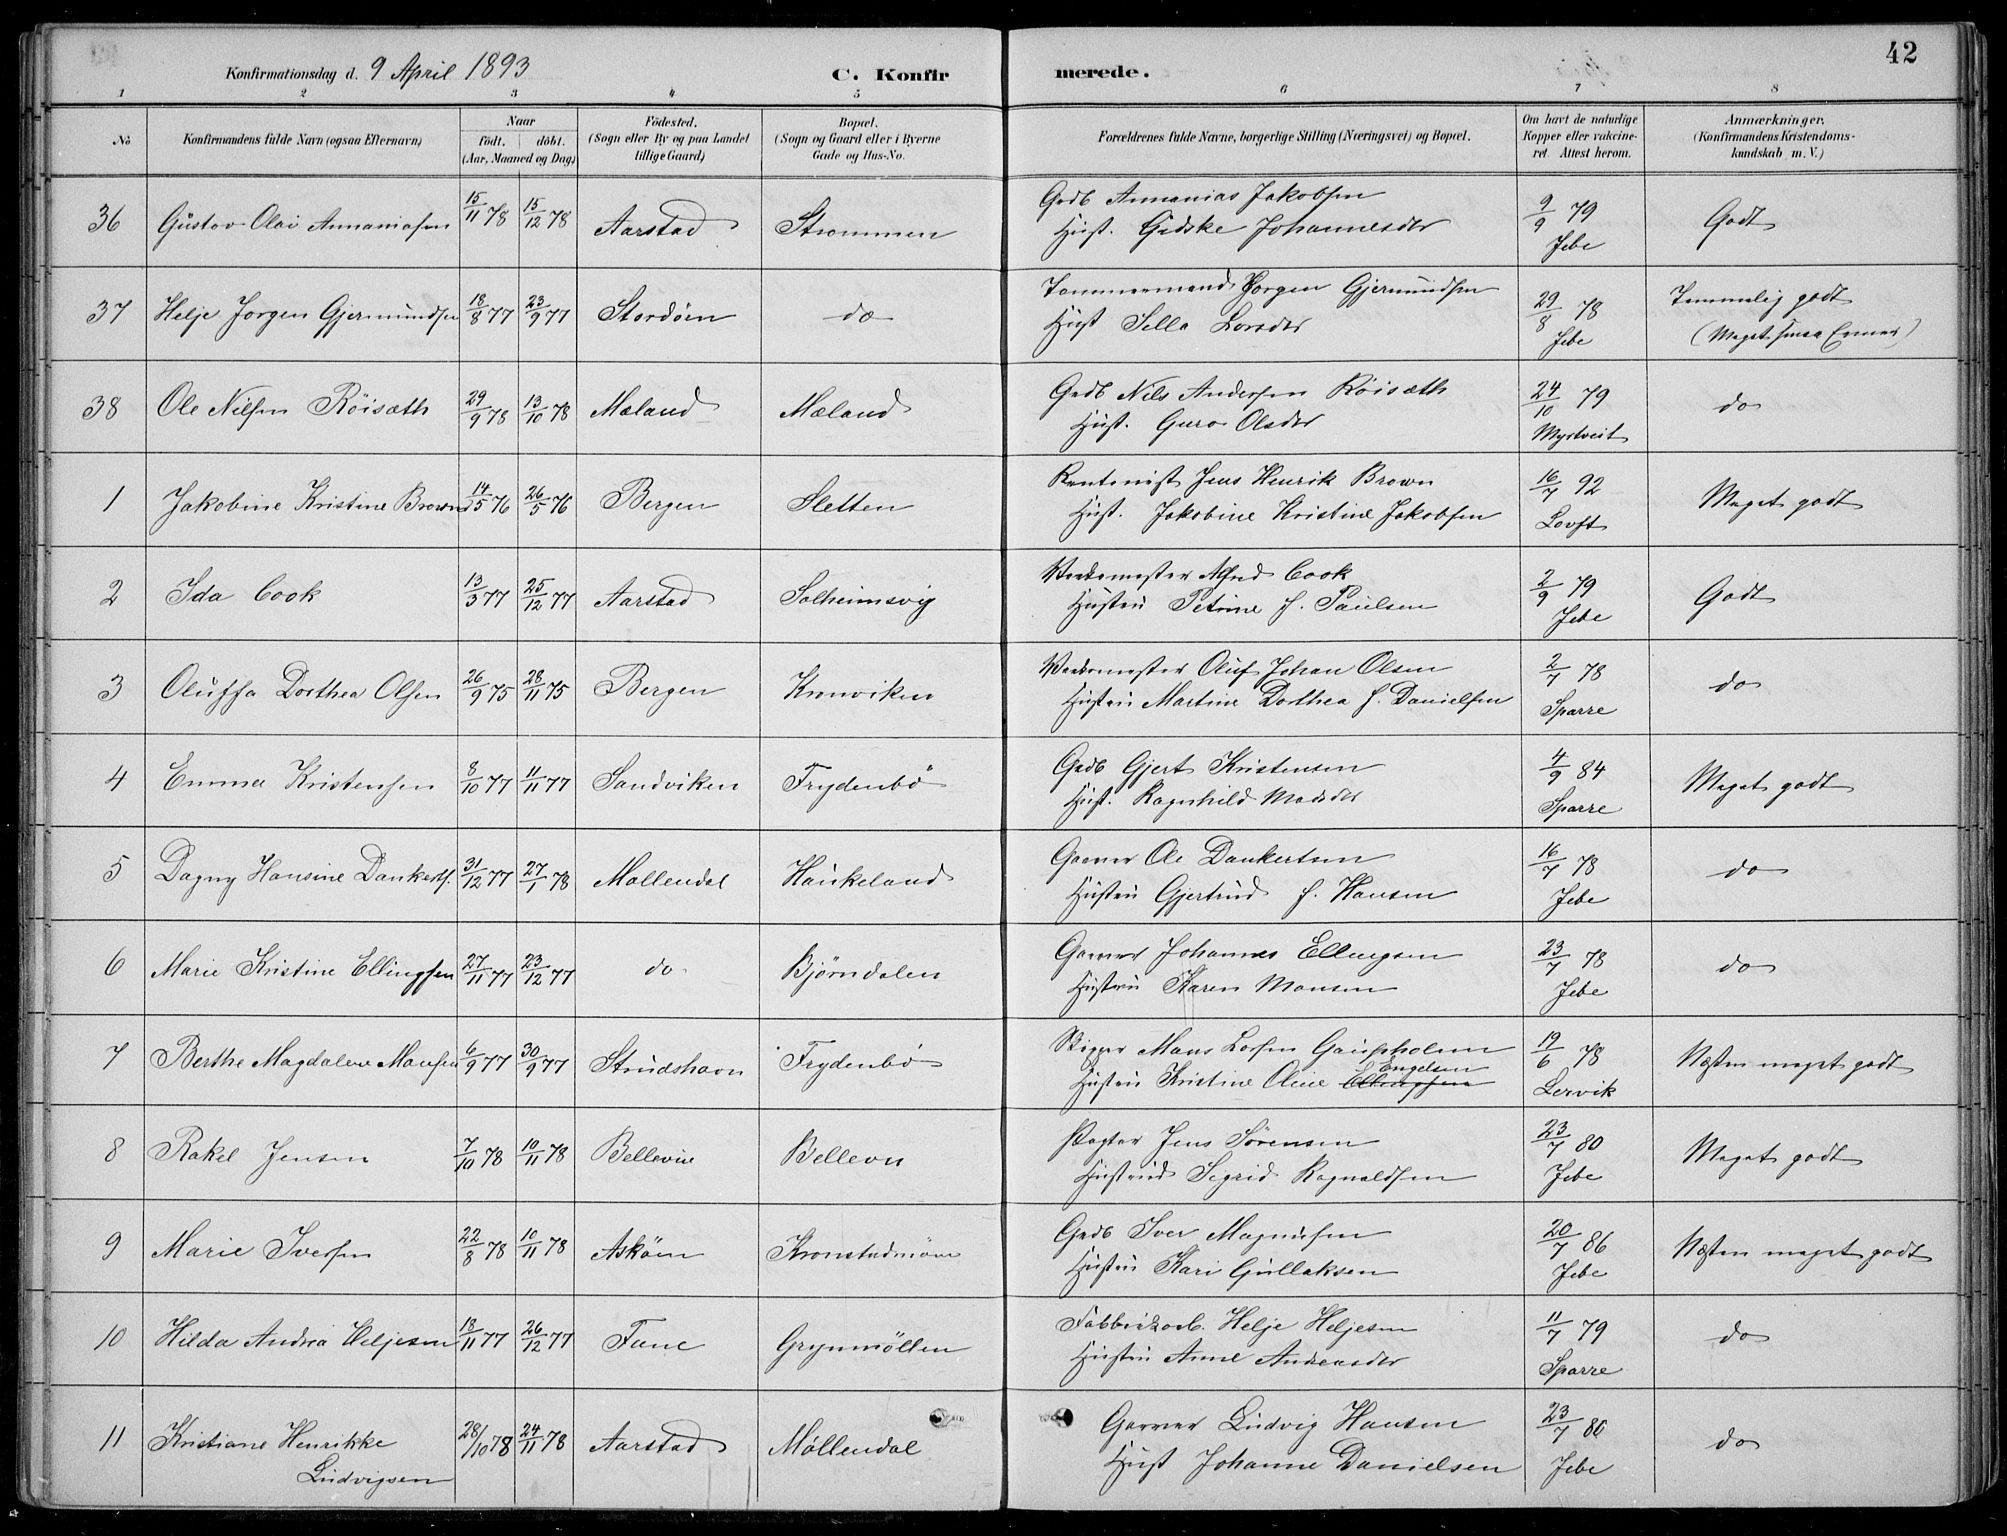 42
Konfirmationsdag d. 9 April 1893 C. Konfirmerede.
1 2 3 4 5 6 7 8
No Konfirmandens fulde Navn (ogsaa Efternavn) Naar født. døbt. (Aar, Maaned og Dag) Födested. (Sogn eller By og paa Landet tillige Gaard) Bopæl. (Sogn og Gaard eller i Byerne Gade og Hus-No. Forældrenes fulde Navne, borgerlige Stilling (Næringsvei) og Bopæl. Om havt de naturlige Kopper eller vakcineret Attest herom. Anmærkninger. (Konfirmandens Kristendomskundskab m. V.)
36 Gustav Olai Annaniasen 15/11 78 15/12 78 Aarstad Strømmen Grdb Annanias Jakobsen 9/9 79 Godt
Hust. Gidske Johannesdtr Jebe
37 Helje Jørgen Gjermundsen 18/8 77 23/9 77 Stordøen do Tømmermand Jørgen Gjermundsen 29/8 78 Temmelig godt
Hust Sella Larsdtr Jebe (Meget smaa Evner)
38 Ole Nilsen Röisæth 29/9 78 13/10 78 Mæland Mæland Grdb Nils Andersen Röisæth 24/10 79 do
Hust. Guro Olsdtr Myrtveit
1 Jakobine Kristine Brown 14/5 76 26/5 76 Bergen Sletten Kontorist Jens Henrik Brown 16/7 92 Meget godt
Hust. Jakobine Kristine Jakobsen Lovft
2 Ida Cook 13/3 77 25/12 77 Aarstad Solheimsvig Værksmester Alfred Cook 2/9 79 Godt
Hustru Petrine f. Paulsen Jebe
3 Oluffa Dorthea Olsen 26/9 75 28/11 75 Bergen Kronviken Værksmester Oluf Johan Olsen 2/7 78 do
Hustru Martine Dorthea f. Danielsen Sparre
4 Emma Kristensen 8/10 77 11/11 77 Sandviken Frydenbö Grdb Gjert Kristensen 4/9 84 Meget godt
Hust. Ragnhild Madsdtr Sparre
5 Dagny Hansine Dankerts. 31/12 77 27/1 78 Møllendal Haukeland Garver Ole Dankertsen 16/7 78 do
Hustru Gjertrud f. Hansen Jebe
6 Marie Kristine Ellingsen 27/11 77 23/12 77 do Bjørndalen Garver Johannes Ellingsen 23/7 78 do
Hustru Karen Monsen Jebe
7 Berthe Magdalene Monsen 6/9 77 30/9 77 Strudshavn Frydenbø Skipper Mons Larsen Gaupholm 19/6 78 Næsten meget godt
Hustru Kristine Oline Ellingsen Engelsen Lervik
8 Rakel Jensen 7/10 78 10/11 78 Bellevue Bellevu Pagter Jens Sörensen 23/7 80 Meget godt
Hustrud Sigrid Ragnaldsen Jebe
9 Marie Iversen 22/8 78 10/11 78 Askøen Kronstadmøen Grdb Iver Magnusen 20/7 86 Næsten meget godt
Hustru Kari Gullaksen Jebe
10 Hilda Andrea Heljesen 18/11 77 26/12 77 Fane Grynmöllen Fabbrikarb. Helje Heljesen 11/7 79 do
Hustru Anne Andreasdtr Sparre
11 Kristiane Henrikke 28/10 78 24/11 78 Aarstad Møllendal Garver Ludvig Hansen 23/7 80 do
Ludvigsen Hust Johanne Danielsen Jebe